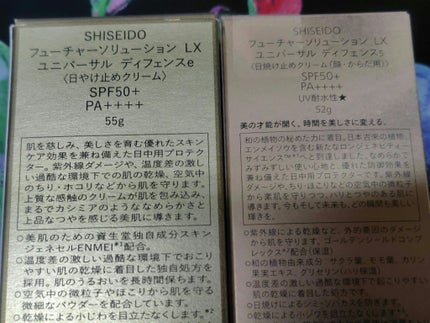 SHISEIDO
フューチャーソリューション LX
ユニバーサル ディフェンスe
〈日やけ止めクリーム〉
SPF50+
PA++++
55g
肌を慈しみ、美しさを育む優れたスキン
ケア効果を兼ね備えた日中用プロテク
ター。紫外線ダメージや、温度差の激し
い過酷な環境下での肌の乾燥、空気中
のちり・ホコリなどから肌を守ります。
上質な感触のクリームが肌を包み込み、
まるでカシミアのようななめらかさと
上品なつやを感じる美肌に導きます。
○美肌のための資生堂独自成分スキン
ジェネセルENMEI*¹配合。
○温度差の激しい過酷な環境下でおこ
りやすい肌の乾燥に着目した独自処方を
採用。肌のうるおいを長時間保ちます。
○空気中の微粒子やほこりから肌を守る
微細なパウダーを配合しています。
○乾燥による小じわを目立たなくします。*²
SHISEIDO
フューチャーソリューション LX
ユニバーサル ディフェンス
〈日焼け止めクリーム(顔・からだ用)〉
SPF50+
PA++++
UV耐水性★
52g
美の才能が開く、時間を美しさに変える。
和の植物の秘めた力に着目。日本古来の植物、
エンメイソウを含む新たなロンジェネビティー
サイエンス
へと到達しました。なめらかで
みずみずしい使い心地と、優れた日中用プロテ
クター効果を兼ね備えた日中用です。紫外線ダ
メージや、ちり・ほこりなどの空気中の微粒子
から美肌を守りつつ、ハリとつやのある肌に
導きます。今もそして未来も、どの瞬間も美し
い輝きを。
○紫外線による乾燥など、外的要因のダメージ
から肌を守ります。ゴールデンシールドコンプ
レックス*²配合(保湿)
○和の植物由来成分 サクラ葉、モモ葉、カリン
果実エキス、グリセリン(ハリ保湿)
○温度差の激しい過酷な環境下でおこりやすい肌
の乾燥に着目した処方です。
○日焼けによるシミ・ソバカスを防ぎます。
○乾燥による小ジワを目立たなくします。